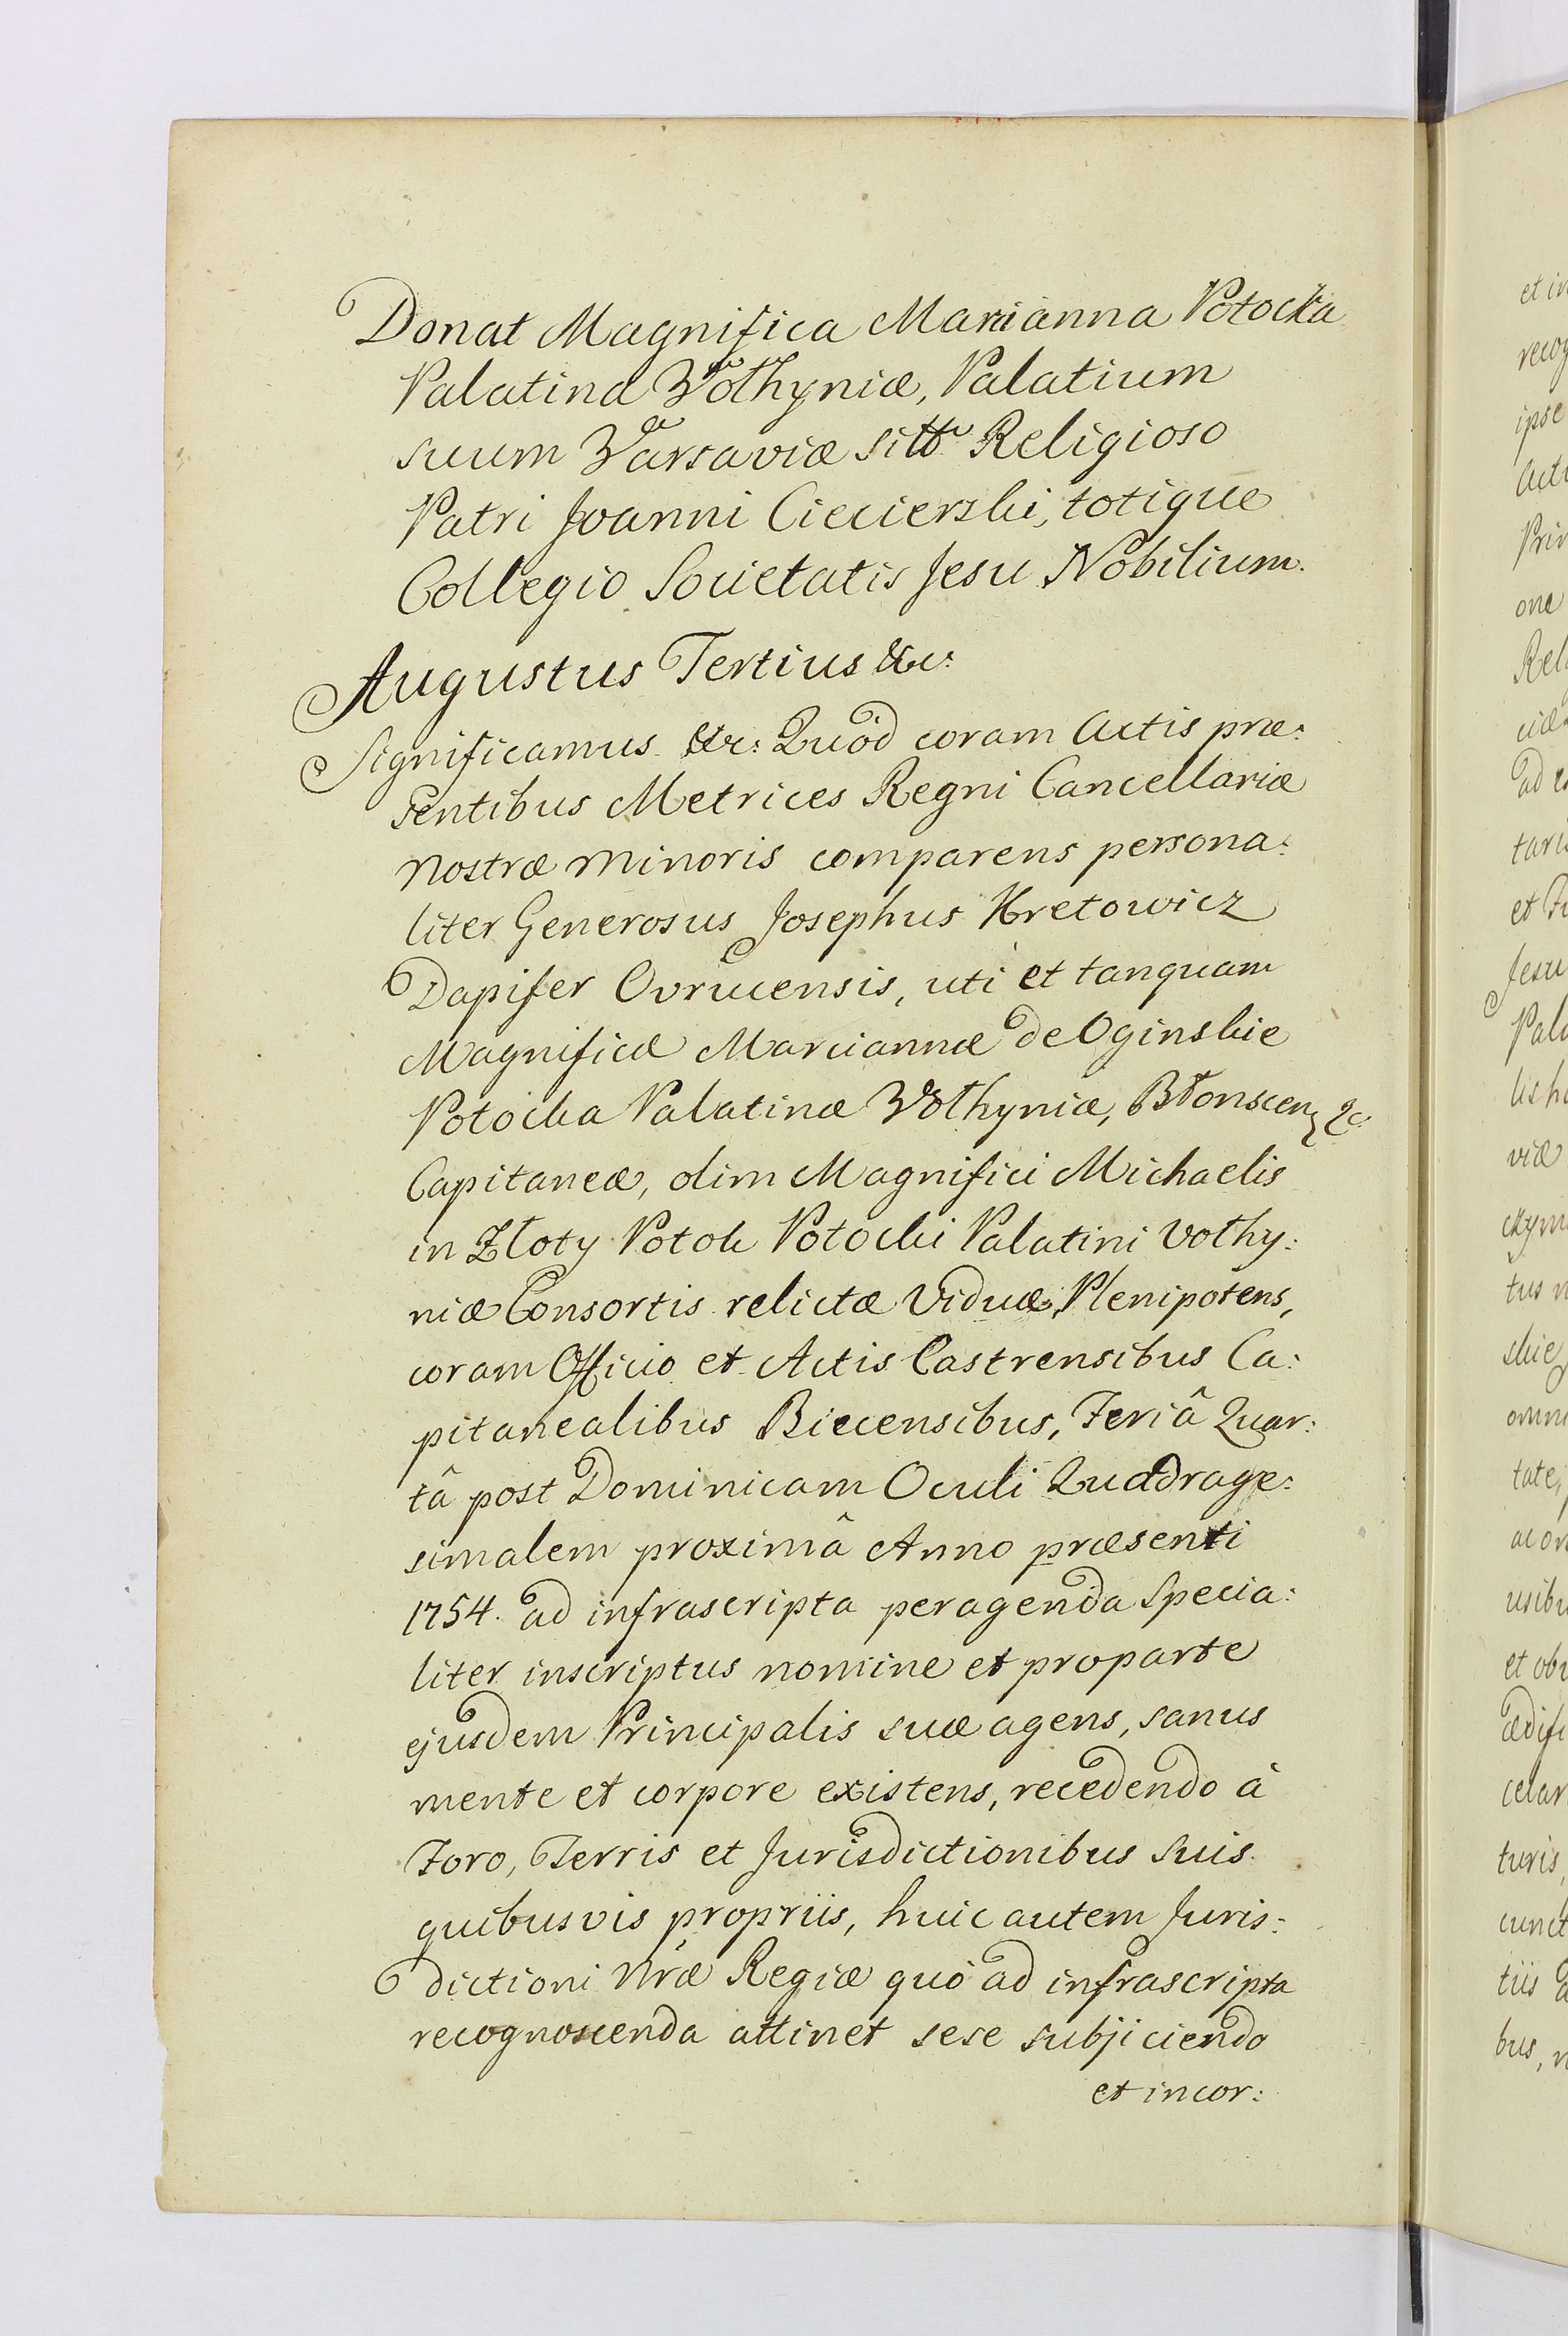 Donat Magnifica Marcianna Potocka
Palatina Wołhyniæ, Palatium
suum Varsaviæ sittũ Religioso
Patri Joanni Ciecierski, totique
Collegio Societatis Jesu Nobilium.
Augustus Tertius &c:
Significamus &c: Quòd coram Actis præ:
sentibus Metrices Regni Cancellariæ
Nostræ Minoris comparens persona:
liter Generosus Josephus Kretowicz
Dapifer Ovrucensis, uti et tanquam
Magnificæ Marciannæ de Oginskie
Potocka Palatinæ Wołhyniæ, Błonscen &c:
Capitaneæ, olim Magnifici Michaelis
in Złoty Potok Potocki Palatini Vołhy:
niæ Consortis relictæ Viduæ, Plenipotens,
coram Officio et Actis Castrensibus Ca:
pitanealibus Biecensibus, Feriâ Quar:
tâ post Dominicam Oculi Quadrage:
simalem proximâ Anno præsenti
1754. ad infrascripta peragenda specia:
liter inscriptus nomine et proparte
ejusdem Principalis suæ agens, sanus
mente et corpore existens, recedendo à
Foro, Terris et Jurisdictionibus suis
quibusvis propriis, huic autem Juris:
dictioni Nræ Regiæ quò ad infrascripta
recognoscenda attinet sese subjiciendo
et incor: